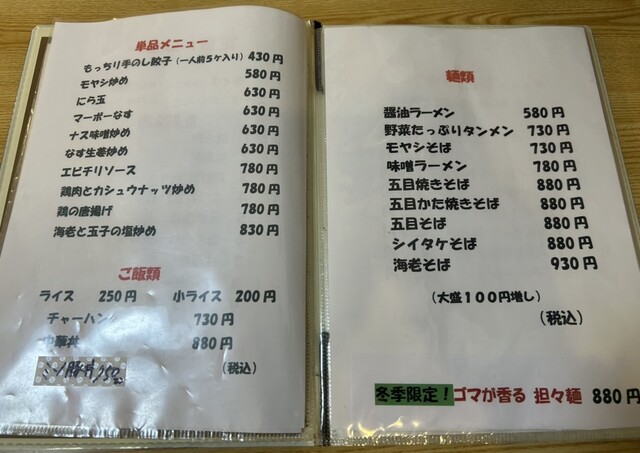 単品メニュー
もっちり手のし餃子（一人前５ケ入り）430円
モヤシ炒め 580円
にら玉 630円
マーボーなす 630円
ナス味噌炒め 630円
なす生姜炒め 630円
エビチリソース 780円
鶏肉とカシュウナッツ炒め 780円
鶏の唐揚げ 780円
海老と玉子の塩炒め 830円
ご飯類
ライス 250円 小ライス 200円
チャーハン 730円
中華丼 880円
（税込）
麺類
醤油ラーメン 580円
野菜たっぷりタンメン 730円
モヤシそば 730円
味噌ラーメン 780円
五目焼きそば 880円
五目かた焼きそば 880円
五目そば 880円
シイタケそば 880円
海老そば 930円
（大盛１００円増し）
（税込）
冬季限定！ゴマが香る 担々麺 880円